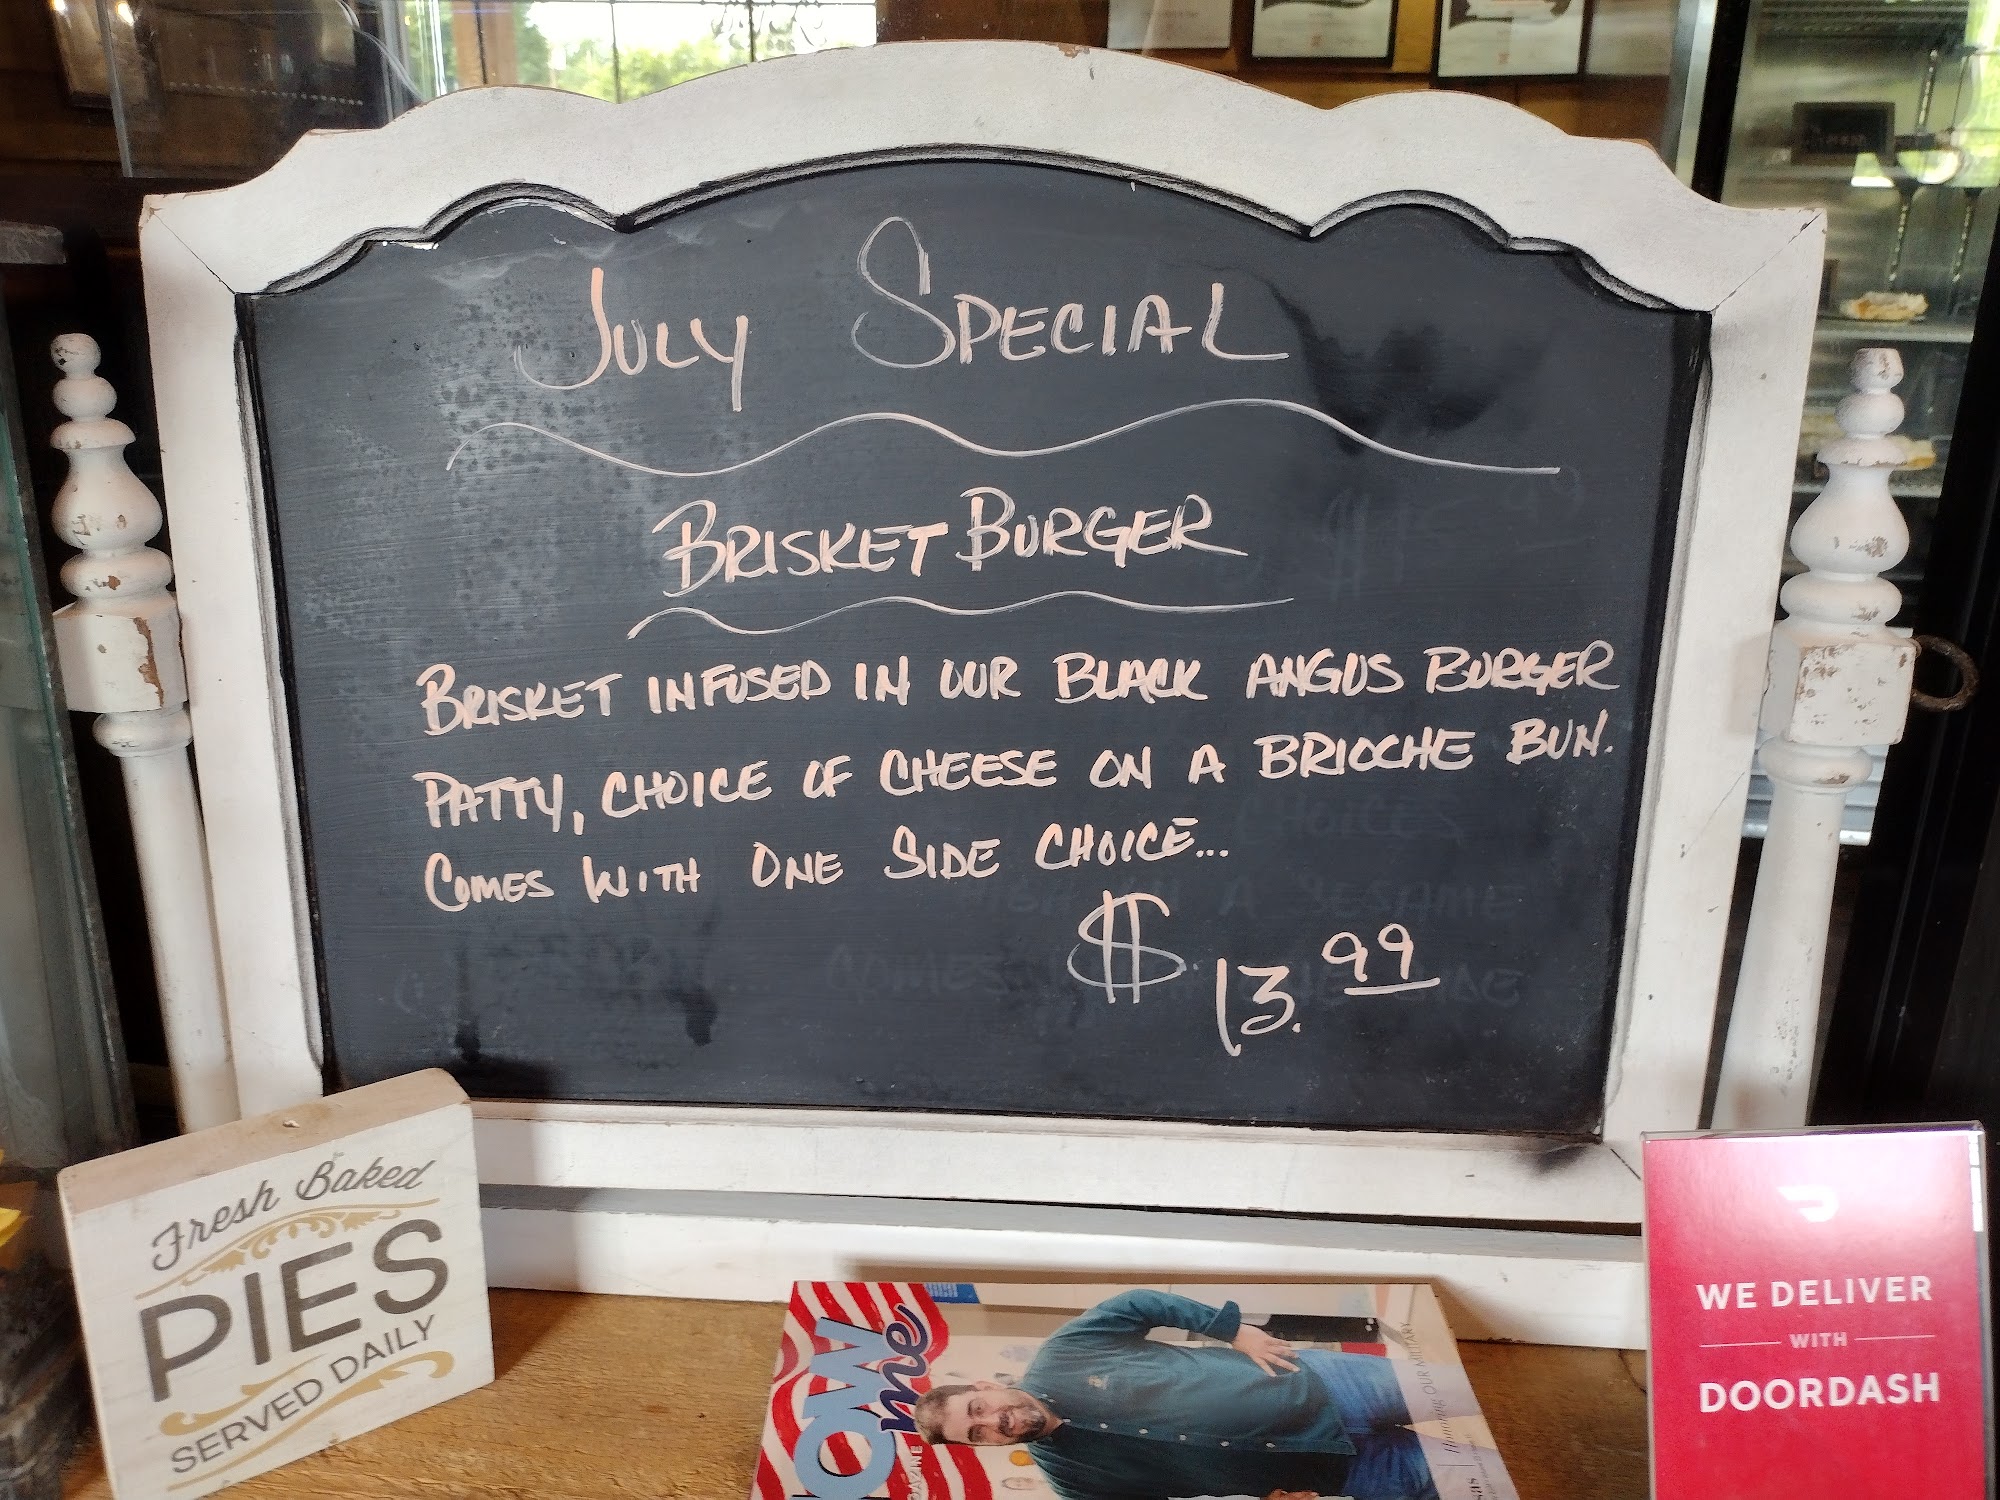 JULY SPECIAL
BRISKET BURGER
BRISKET INFUSED IN OUR BLACK ANGUS BURGER
PATTY, CHOICE OF CHEESE ON A BRIOCHE BUN.
COMES WITH ONE SIDE CHOICE...
$13.99
Fresh Baked
PIES
SERVED DAILY
me
Honoring OUR MILITARY
WE DELIVER
WITH
DOORDASH